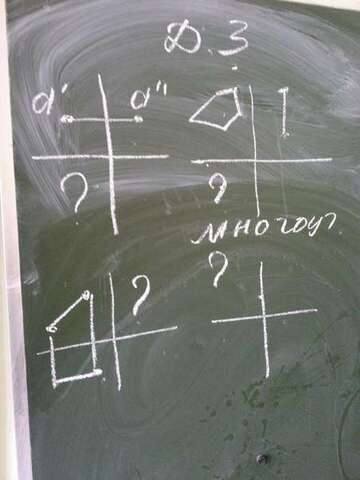 Д.З
a' a"
?
?
многоуг.
?
?